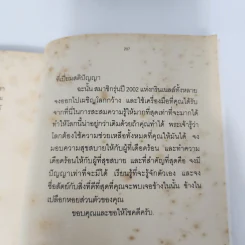 ที่เปี่ยมสติปัญญา
ฉะนั้น สมาชิกรุ่นปี 2002 แห่งการ์เนลล์ทั้งหลาย
จงออกไปเผชิญโลกกว้าง และใช้เครื่องมือที่คุณได้รับ
จากที่นี่ในการสะสมความรู้ให้มากที่สุดเท่าที่จะมากได้
ทำให้โลกนี้น่าอยู่กว่าเดิมด้วยถ้าคุณทำได้ พระเจ้ารู้ว่า
โลกต้องใช้ความช่วยเหลือทั้งหมดที่คุณให้มันได้ จง
มอบความสุขสบายให้กับผู้ที่เดือดร้อน และทำความ
เดือดร้อนให้กับผู้ที่สุขสบาย และที่สำคัญที่สุดคือ จงมี
ปัญญาเท่าที่จะมีได้ เรียนรู้ที่จะรู้จักตัวเอง และจง
ซื่อสัตย์กับสิ่งที่ดีที่สุดที่คุณจะพบเจอข้างในนั้น ข้างใน
เปลือกหอยส่วนตัวของคุณ
ขอบคุณและขอให้โชคดีครับ